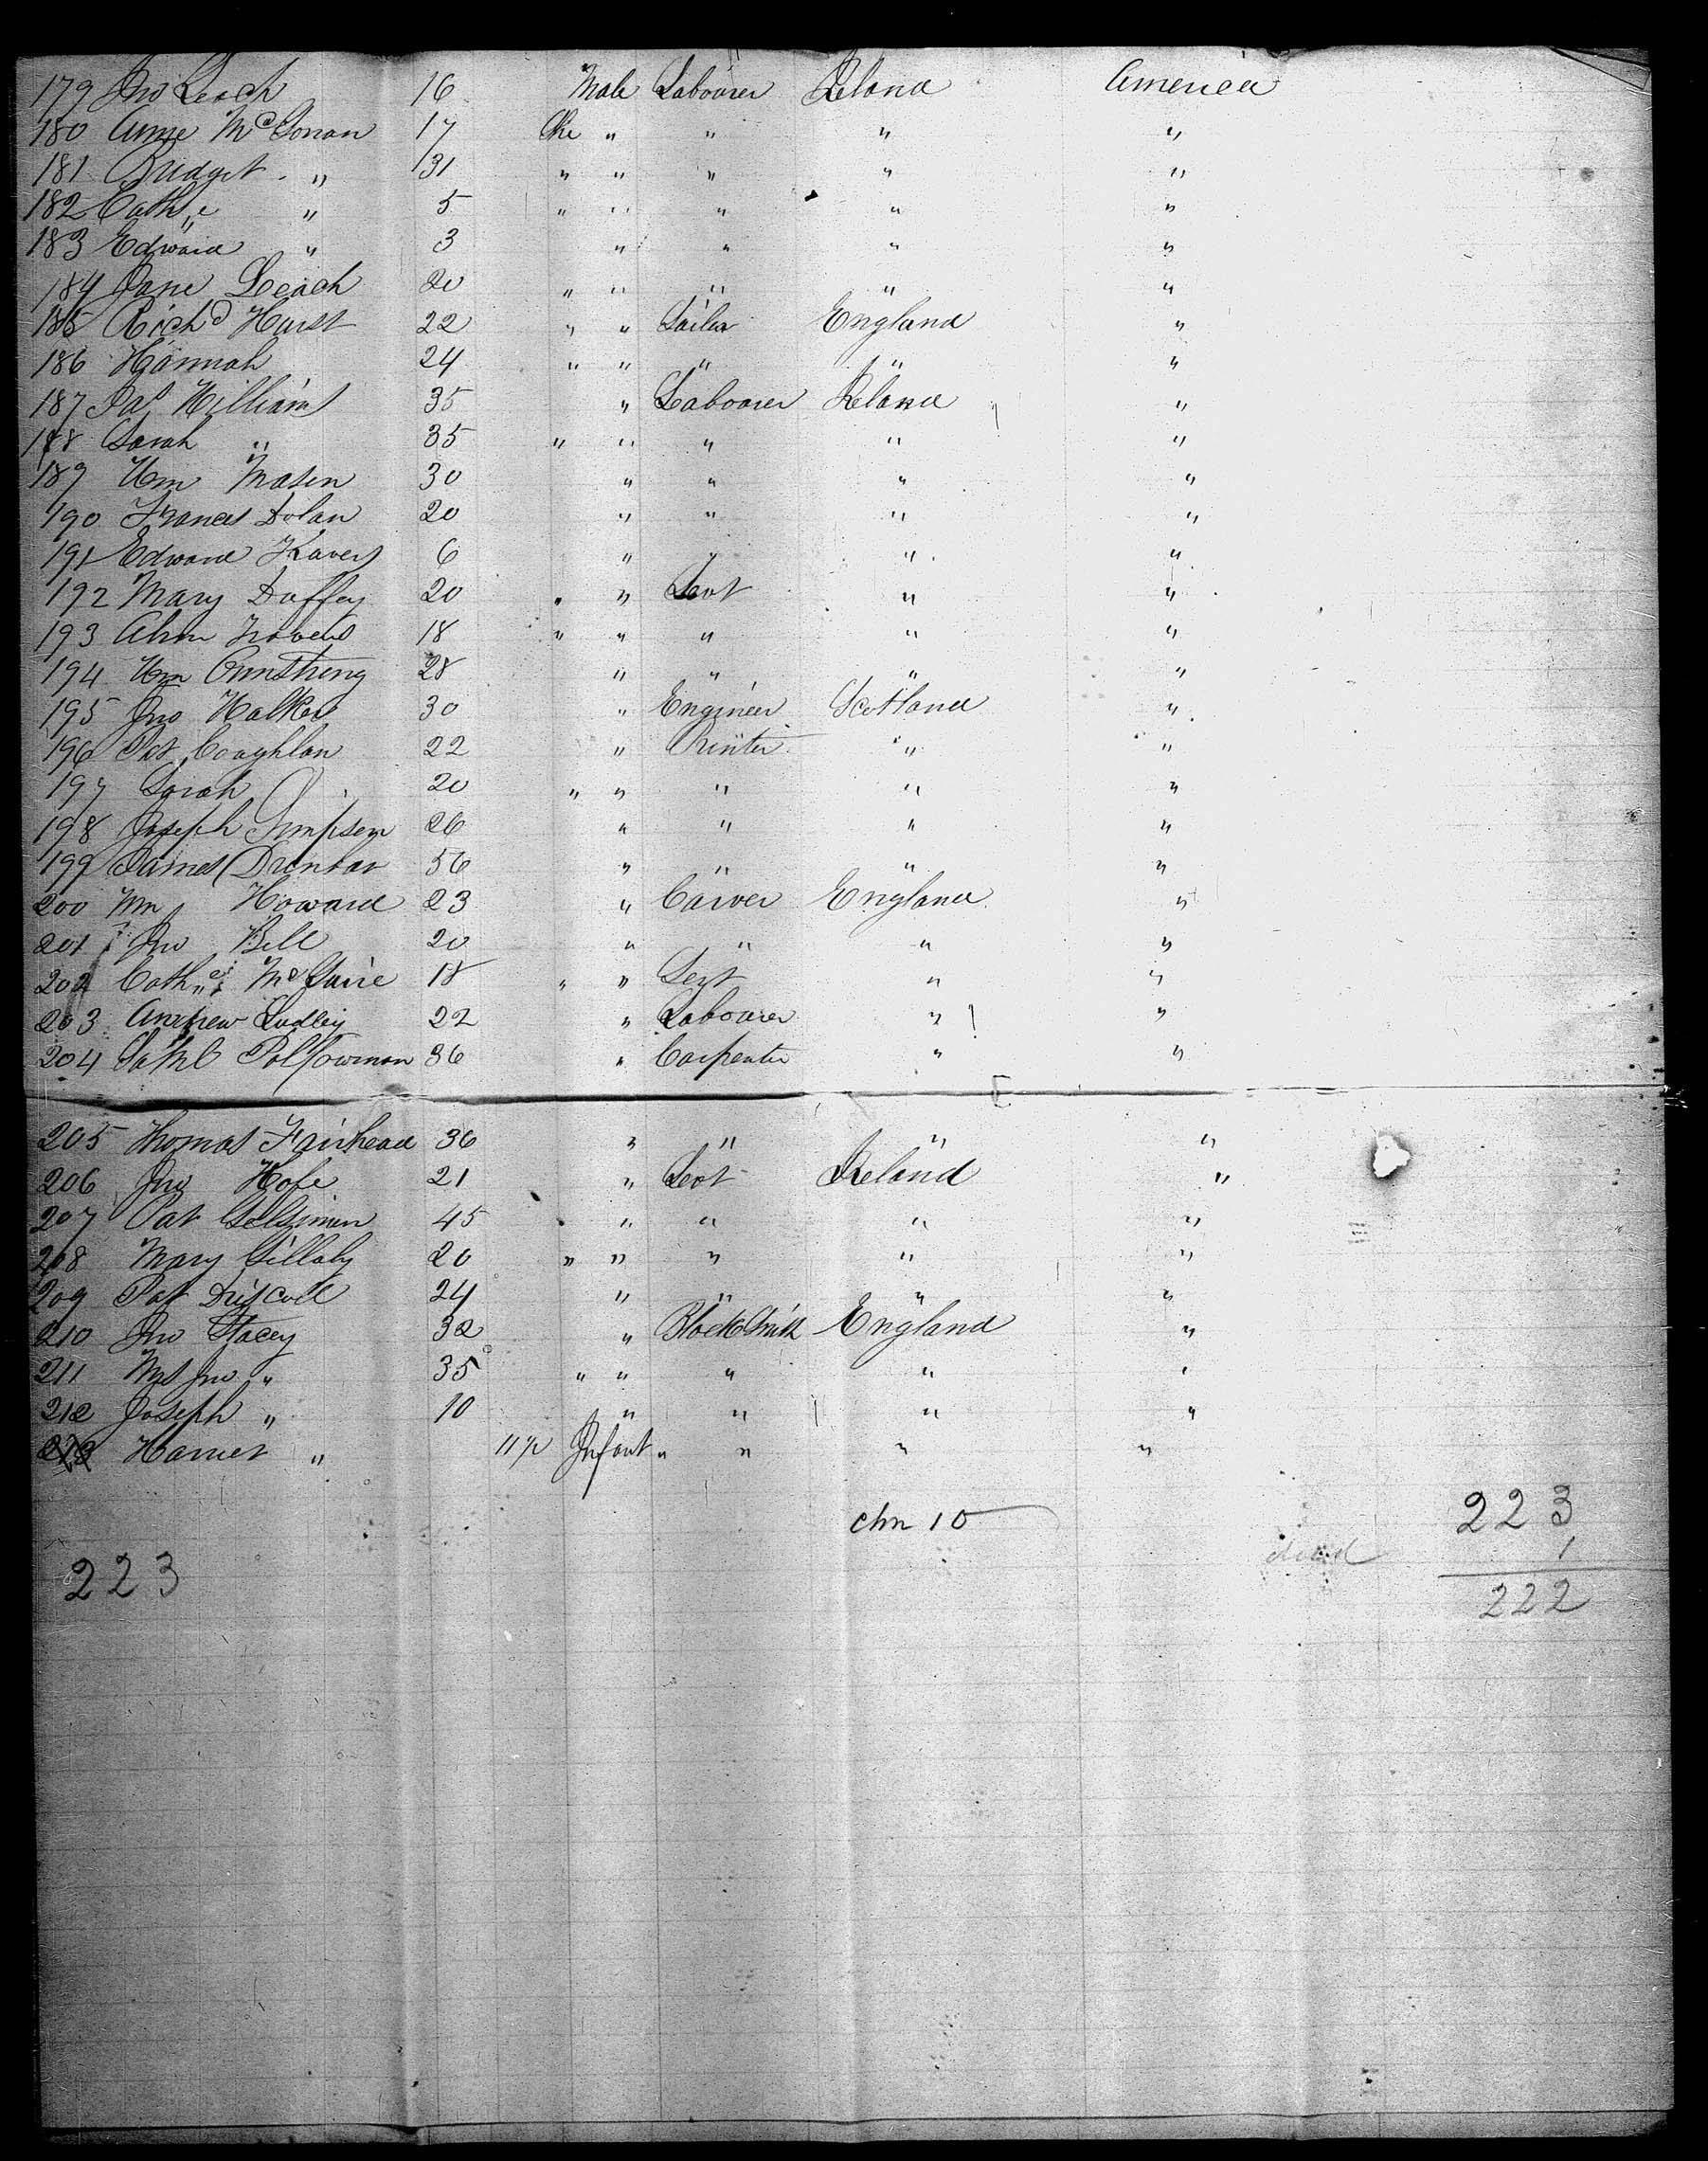 179 Jno Leach 16 Male Labourer Ireland America
180 Anne McGowan 17 Fe " " " "
181 Bridget " 31 " " " " "
182 Cathe " 5 " " " " "
183 Edward " 3 " " " "
184 Jane Leach 20 " " " " "
185 Richd Hurst 22 " " Sailor England "
186 Hannah 24 " " " " "
187 Jas Williams 35 " Labourer Ireland "
188 Sarah " 35 " " " " "
189 Wm Mason 30 " " " "
190 Frances Dolan 20 " " " "
191 Edward 6 " " " "
192 Mary Duffey 20 " " Sevt " "
193 18 " " " " "
194 Wm Armstrong 28 " " " "
195 Jno Walker 30 " Engineer Scotland "
196 Pat Coughlan 22 " Printer " "
197 Sarah " 20 " " " " "
198 Joseph Simpson 26 " " " "
199 James 56 " " " "
200 Wm Howard 23 " Carver England "
201 Jno Bell 20 " " " "
202 Cathe McGuire 18 " " Sevt " "
203 Andrew Ludley 22 " Labourer " "
204 36 " Carpenter " "
205 Thomas Fairhead 36 " " " "
206 Jno Hope 21 " Sevt Ireland "
207 Pat 45 " " " "
208 Mary 20 " " " " "
209 Pat Driscoll 24 " " " "
210 Jno Stacey 32 " BlackSmith England "
211 Mrs Jno " 35 " " " " "
212 Joseph " 10 " " " "
213 Harriet " Infant " " " "
chn 10
223
died 1
222
223